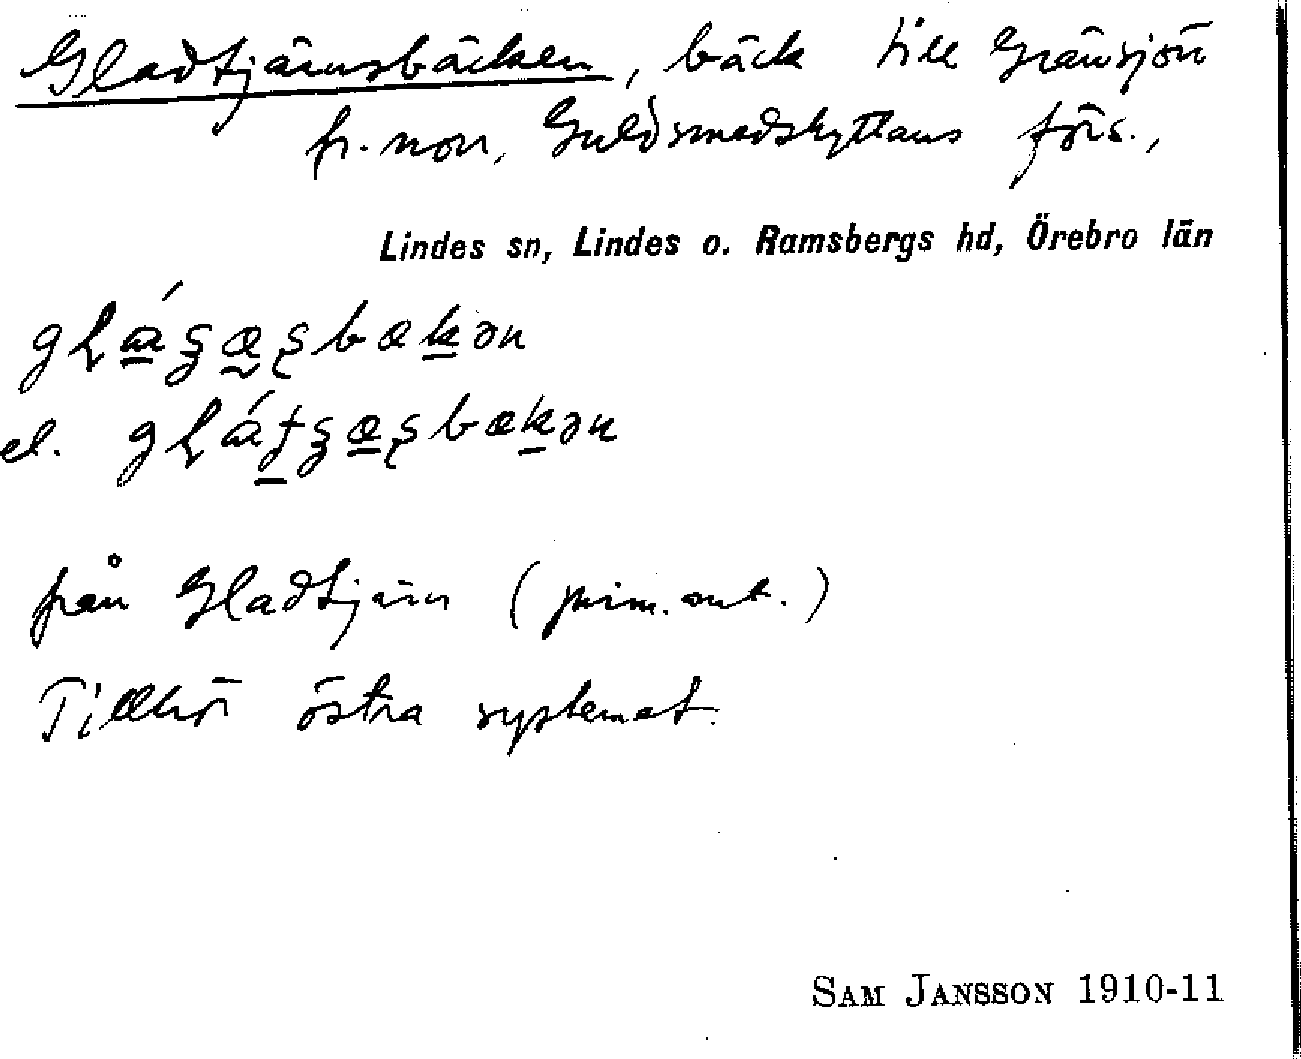 Gladtjärnsbäcken, bäck till Gränsjön
fr. norr, Guldsmedshyttans förs.,
Lindes sn, Lindes o. Ramsbergs hd, Örebro län
el.
från Gladtjärn (prim. ont.)
Tillhör östra systemet.
SAM JANSSON 1910-11